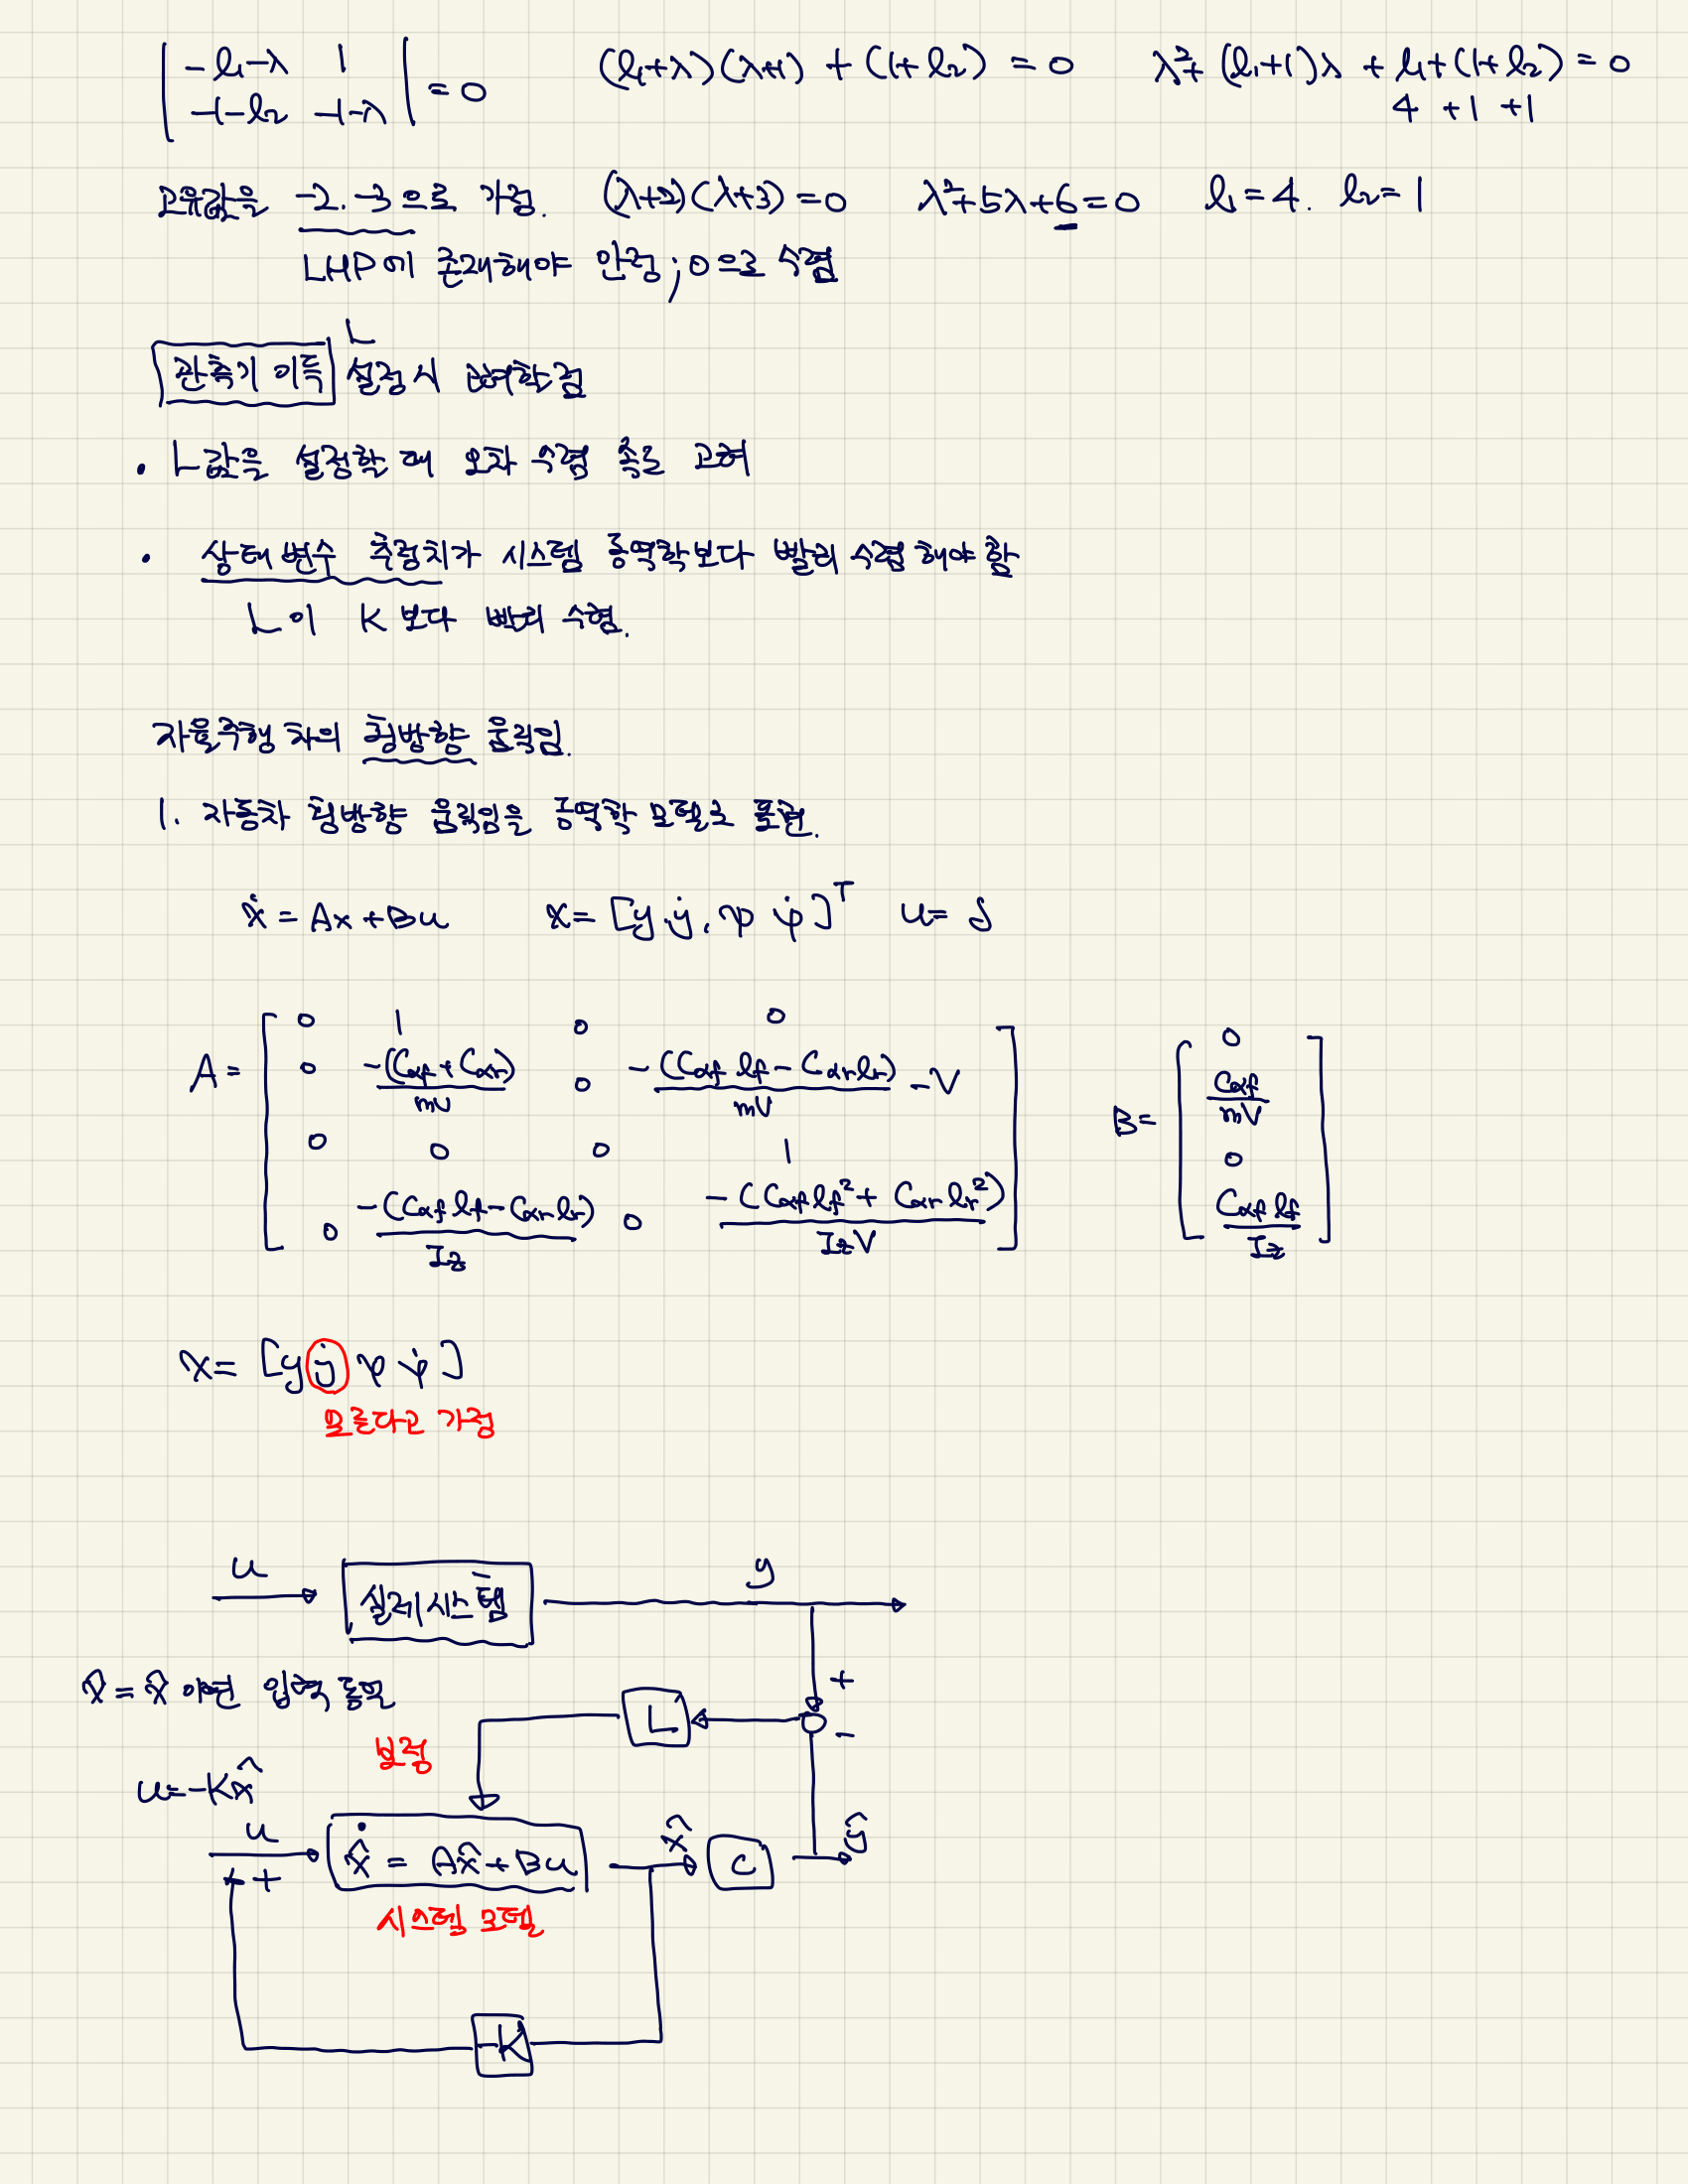 | -l₁-λ 1 |
| -1-l₂ -1-λ | = 0 (l₁+λ)(λ+1) + (1+l₂) = 0 λ²+(l₁+1)λ + l₁+(1+l₂) = 0
4 +1 +1
고유값을 -2. -3으로 가정. (λ+2)(λ+3) = 0 λ²+5λ+6 = 0 l₁ = 4. l₂ = 1
LHP에 존재해야 안정; 0으로 수렴
L
관측기 이득 설정시 고려할점
• L값을 설정할 때 오차 수렴 속도 고려
• 상태 변수 추정치가 시스템 동역학보다 빨리 수렴해야 함
L이 K보다 빨리 수렴.
자율주행 차의 횡방향 움직임.
1. 자동차 횡방향 움직임을 동역학 모델로 표현.
ẋ = Ax + Bu x = [y ẏ, ψ ψ̇]ᵀ u = δ
A = [ 0 1 0 0
0 -(Cαf + Cαr)/mV 0 -(Cαf lf - Cαr lr)/mV - V
0 0 0 1
0 -(Cαf lf - Cαr lr)/Iz 0 -(Cαf lf² + Cαr lr²)/IzV ]
B = [ 0
Cαf/mV
0
Cαf lf/Iz ]
x = [y ẏ ψ ψ̇]
모른다고 가정
u 실제시스템 y
+
x̂ = x̂ 이면 입력 동일 L
-
보정
u = -Kx̂
u x̂̇ = Ax̂ + Bu x̂ C ŷ
+ +
시스템 모델
-K